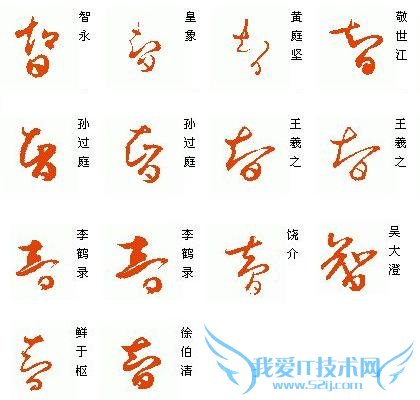 智 智永
智 皇象
智 黄庭坚
智 敬世江
智 孙过庭
智 孙过庭
智 王羲之
智 王羲之
智 李鹤录
智 李鹤录
智 饶介
智 吴大澄
智 鲜于枢
智 徐伯清
我爱IT技术网
www.52ij.com